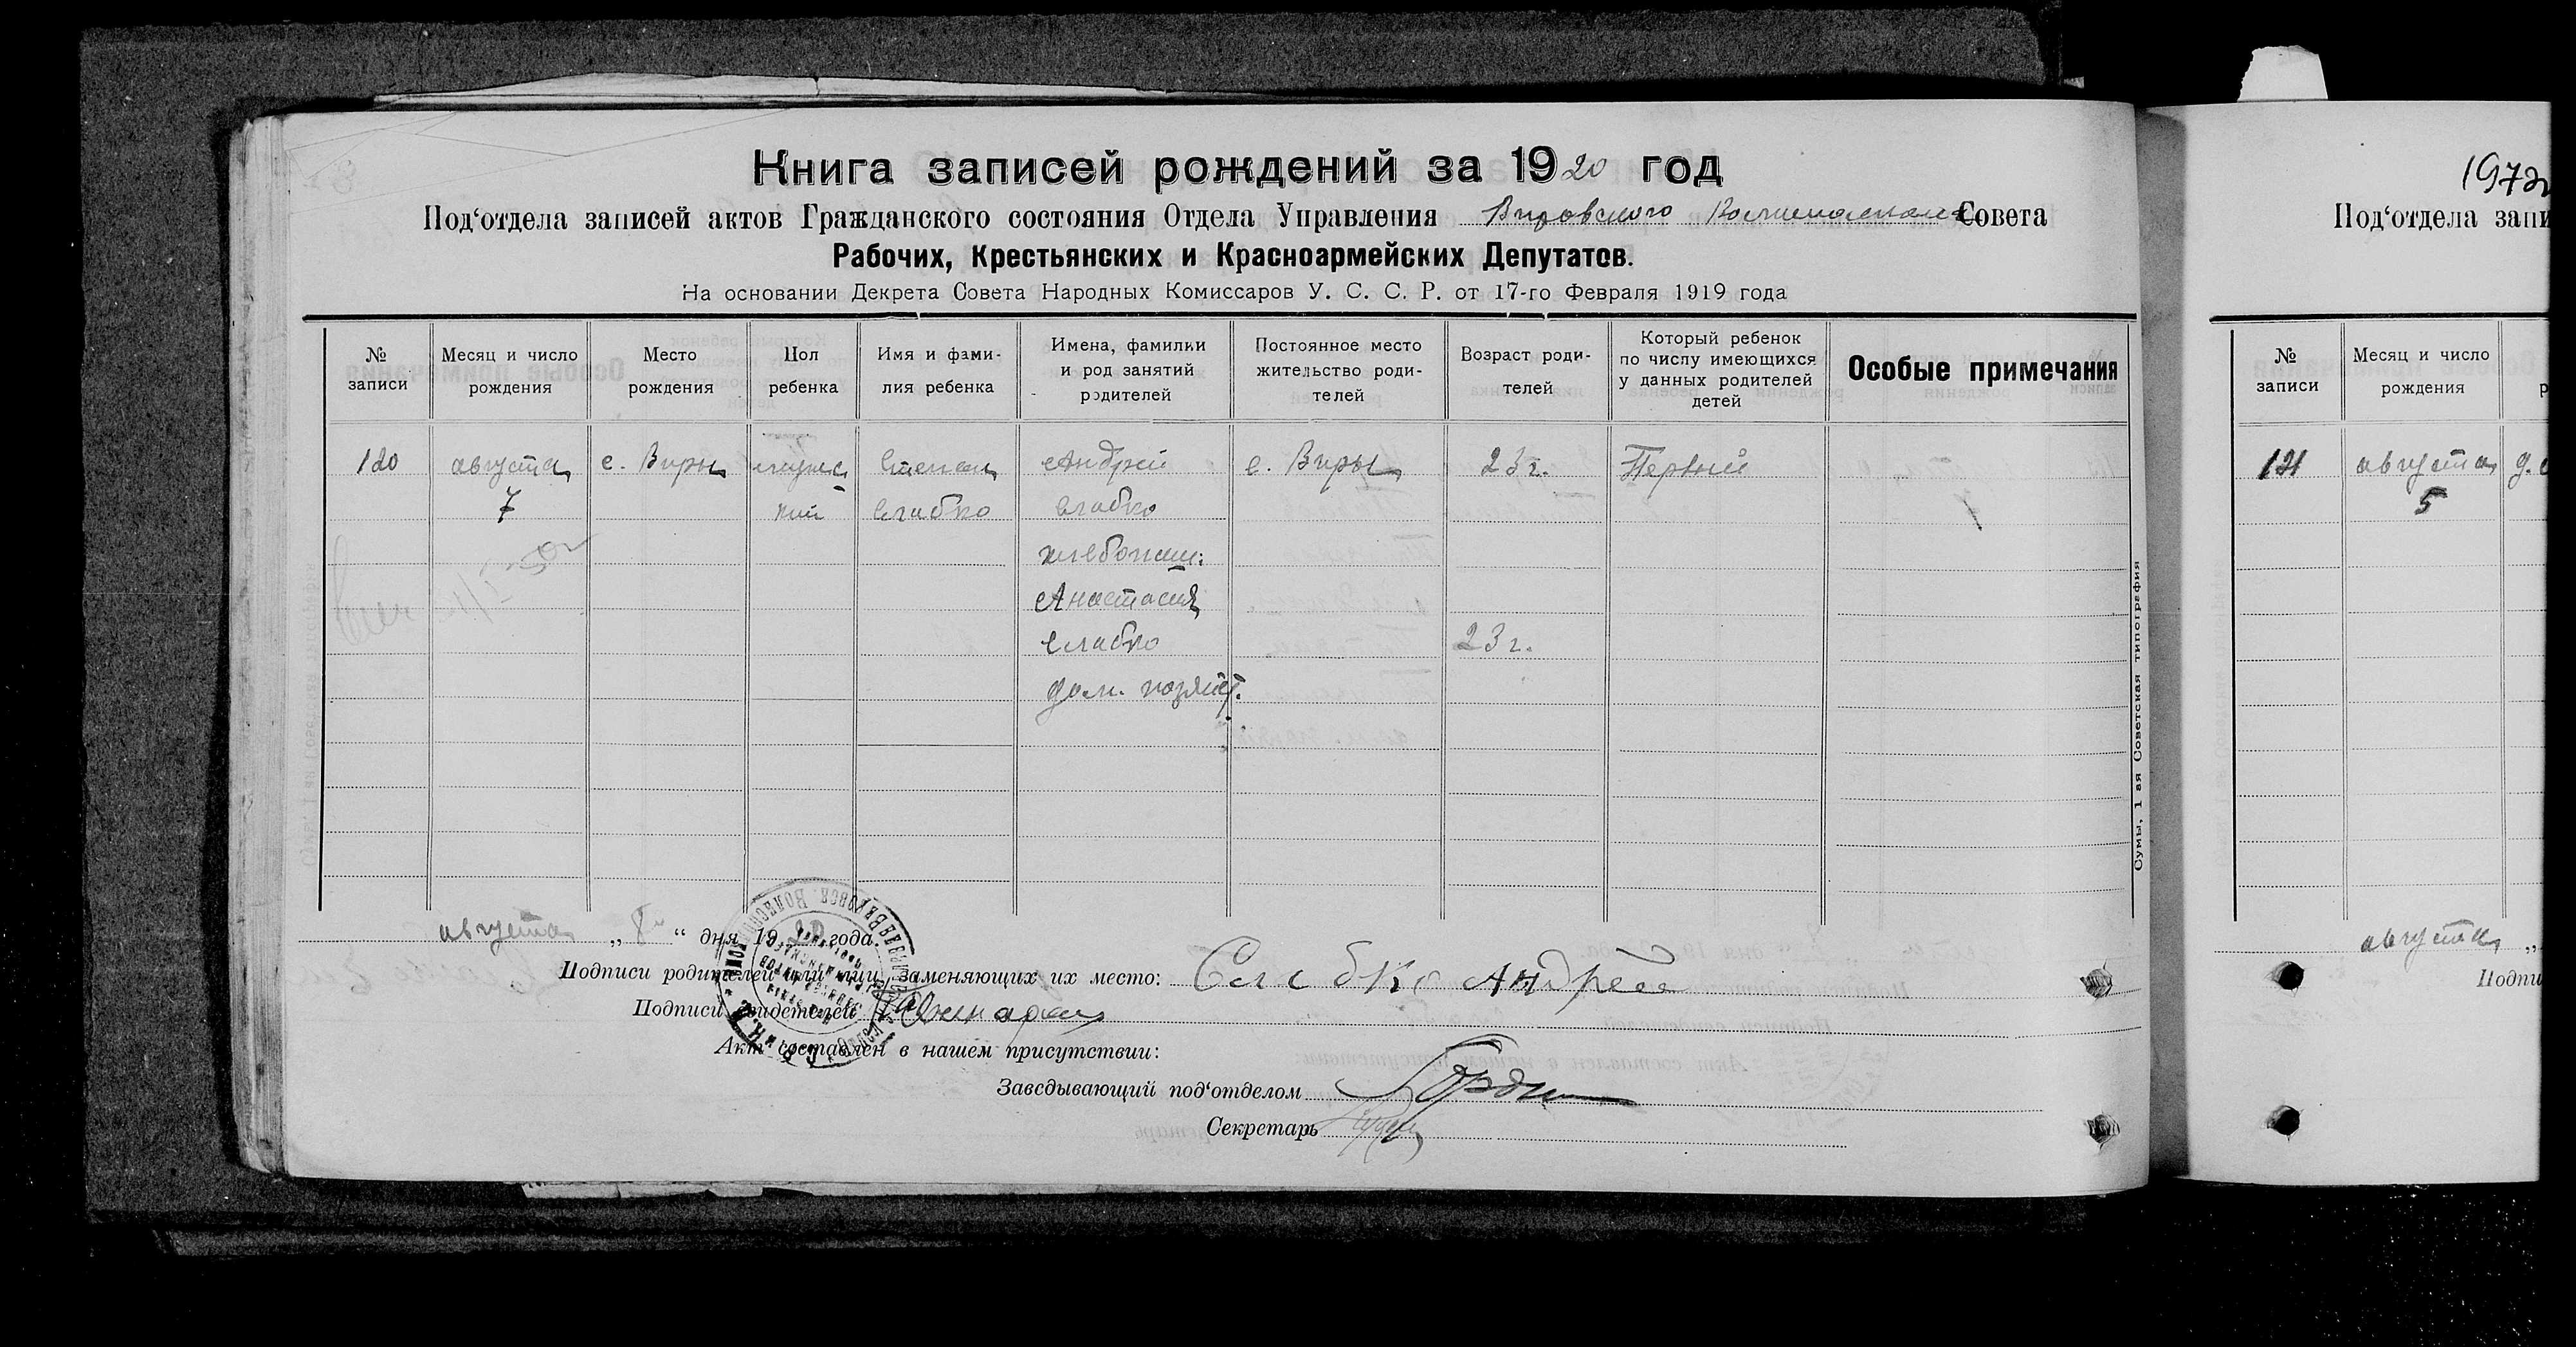 Книга записей рождений за 1920 год
Под‘отдела записей актов Гражданского состояния Отдела Управления Вировского Совета
Рабочих, Крестьянских и Красноармейских Депутатов.
На основании Декрета Совета Народных Комиссаров У. С. С. Р. от 17-го Февраля 1919 года
№ записи
Месяц и число рождения
Место рождения
Пол ребенка
Имя и фами-
лия ребенка
Имена, фамилии
и род занятий
родителей
Постоянное место
жительство роди-
телей
Возраст роди-
телей
Который ребенок
по числу имеющихся
у данных родителей
детей
Особые примечания
120
августа
7
с. Виры
мужс
кий
Степан
Слабко
Андрей
Слабко
хлебопаш:
Анастасия
Слабко
дом. хозяйст.
с. Виры
23 г.
23 г.
Первый
августа „8“ дня 1920 года.
Подписи родителей или лиц, заменяющих их место: Слабко Андрей
Подписи свидетелей
Акт составлен в нашем присутствии:
Заведывающий под‘отделом
Секретарь
Сумы, 1-ая Советская типография
197
Под‘отдела запи
№ записи
Месяц и число рождения
121
августа
5
д.
августа „
Подпи